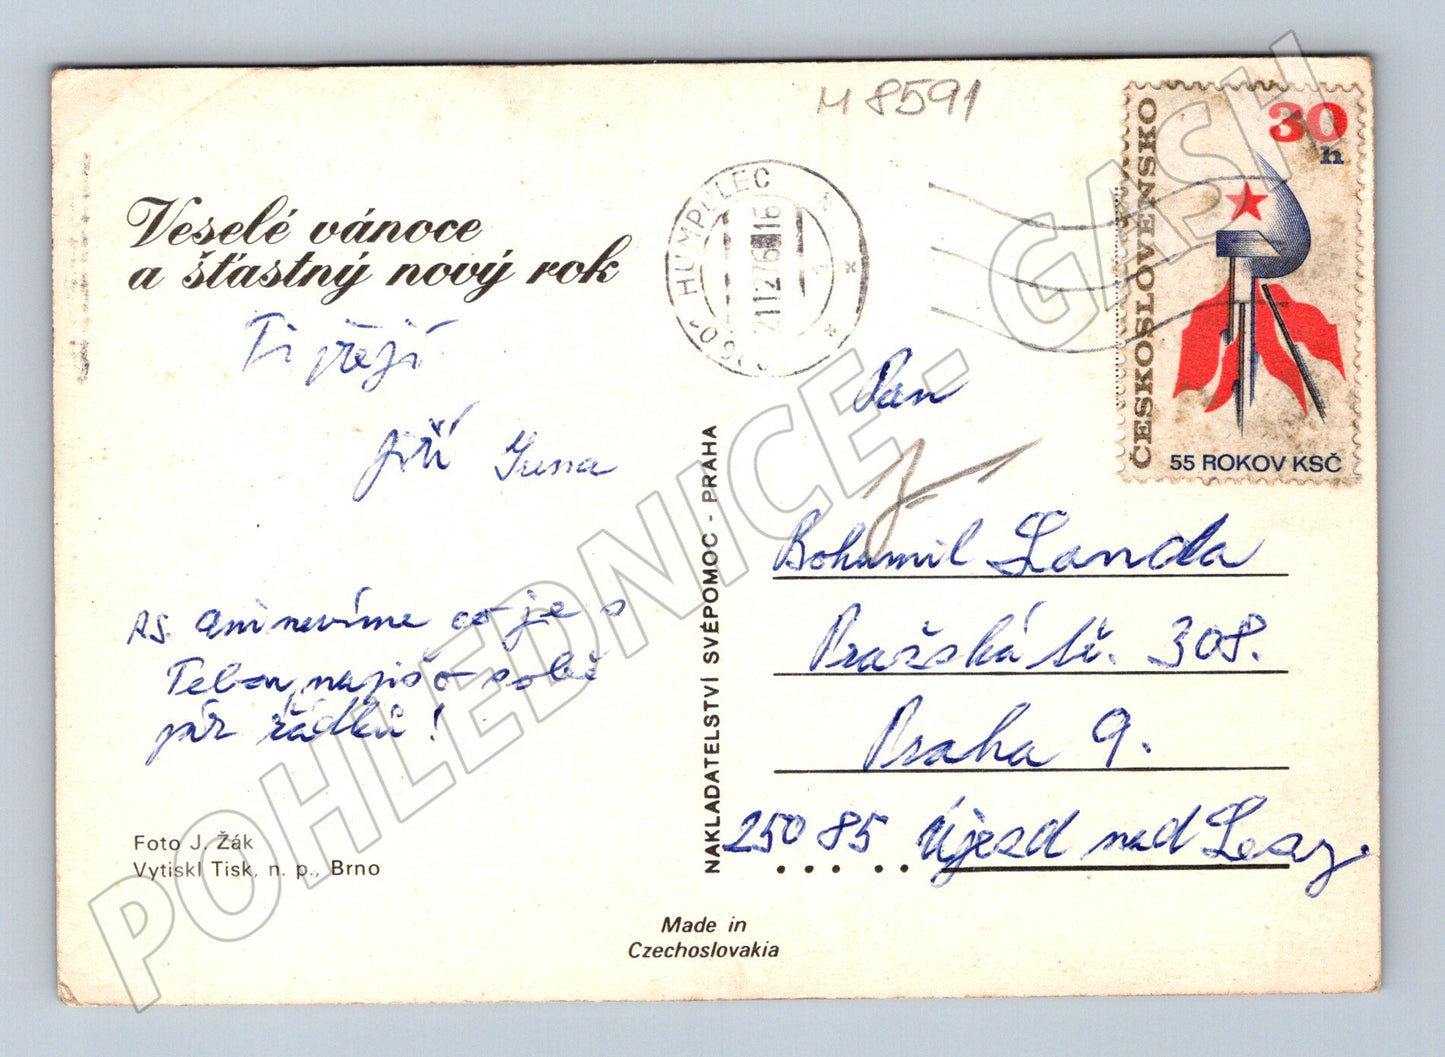 M 8591
ČESKOSLOVENSKO
30
h
55 ROKOV KSČ
HUMPOLEC
21.12.76-16
Veselé vánoce
a šťastný nový rok
Ti přejí
Jiří
Pan
Bohumil Landa
Pražská tř. 308.
Praha 9.
250 85 Újezd nad Lesy.
PS. ani nevíme co je s
Tebou, napiš o sobě
pár řádků!
Foto J. Žák
Vytiskl Tisk, n. p., Brno
NAKLADATELSTVÍ SVÉPOMOC - PRAHA
Made in
Czechoslovakia
POHLEDNICE - GASH